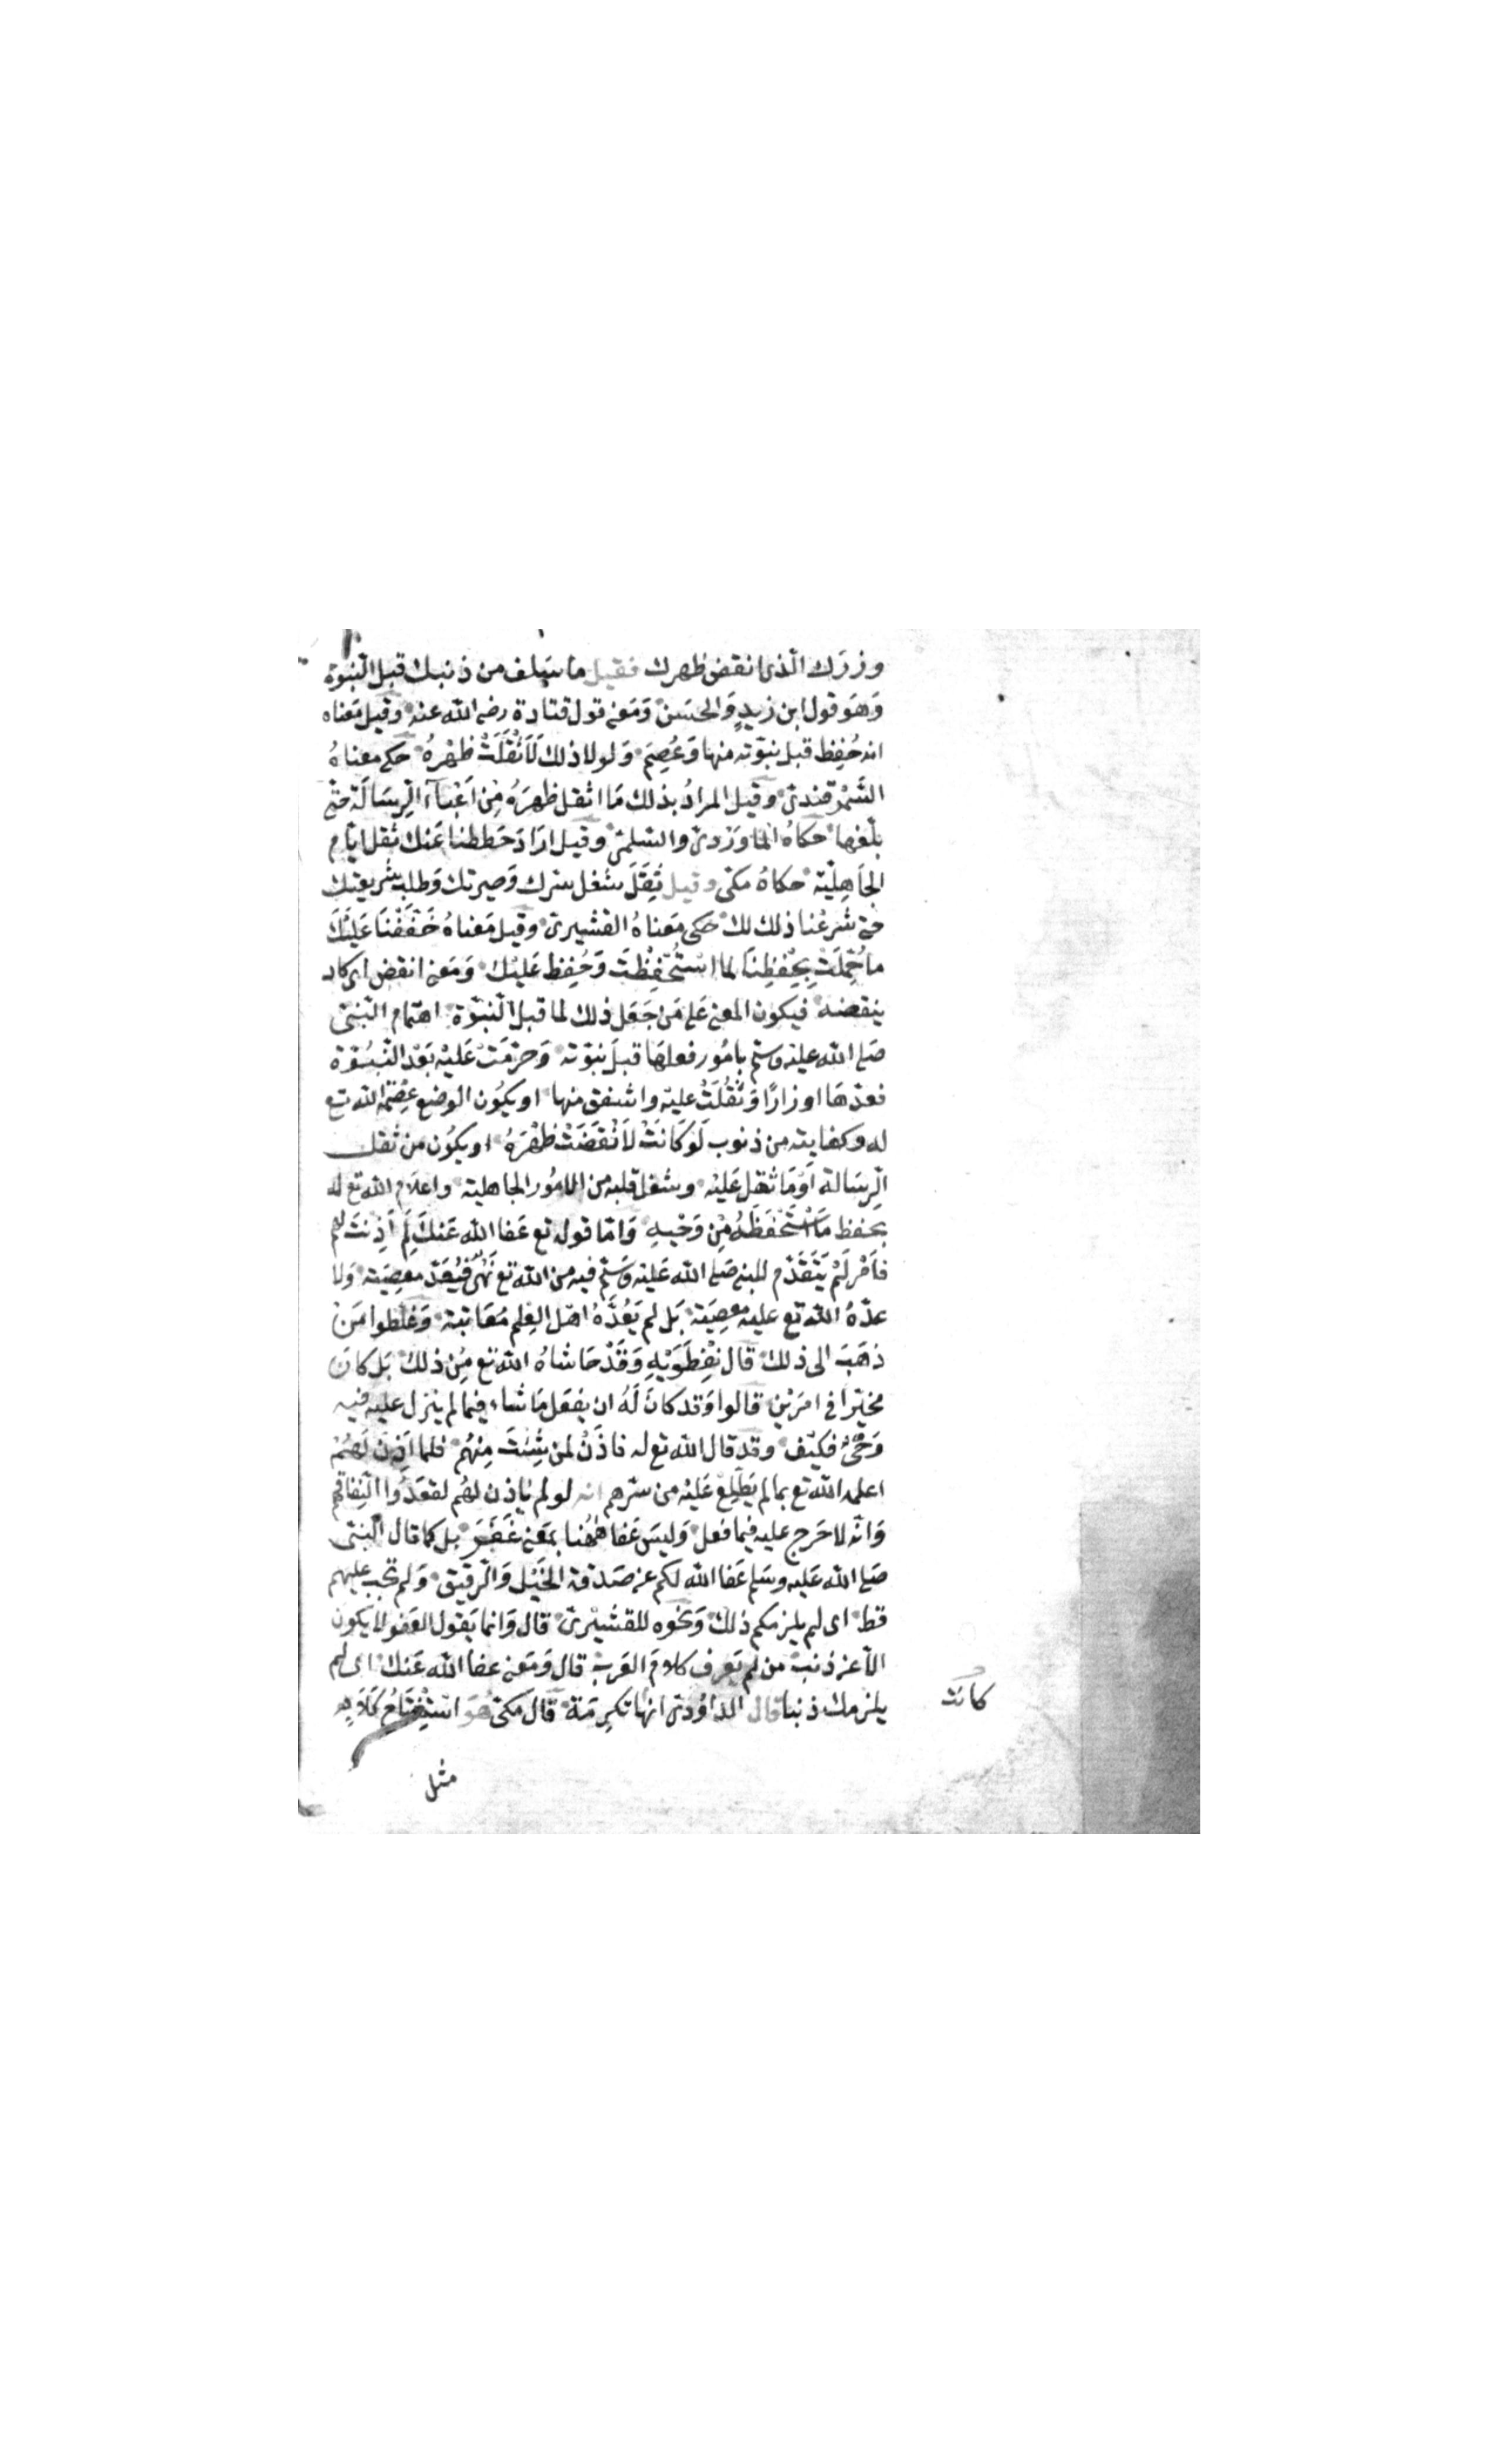 وزرك الذى انقض ظهرك فقيل ما سلف من ذنبك قبل النبوة
وَهوَ قول ابن زيدٍ وَالحسَن وَمَعنى قول قتادة رضى الله عنه وقيل مَعناه
انه حُفِظ قبل نبوّته منها وَعُصِمَ وَلولا ذلك لَاَثْقَلَتْ ظَهْرهُ حكى معناهُ
السَّمْرقندىّ وقيل المرادُ بذلك مَا اثقل ظهرَهُ مِن اَعْبآء الرِسَالَة حتى
بلّغها حكاهُ الماوَرْدىّ والسّلمىّ وقيل ارَادَ حَططنا عَنك ثقل ايّام
الجَاهِليّة حكاهُ مكى وقيل ثِقَلَ شغل سرك وَحيرتك وَطلب شريعتك
حتى شَرعْنا ذلك لك حكى مَعناهُ القشيرىّ وقيل مَعناهُ خَفَّفْنَا عَليْكَ
ما حُمِّلْتَ بِحِفْظِنَا لما اسْتُحْفِظْتَ وَحُفِظ عَليْك وَمَعنى انقض اى كاد
ينقضه فيكون المعنى عَلى مَن جَعَل ذلك لما قبل النّبوّة اهتمام النّبىّ
صَلى الله عليه وسلم بامُور فعلهَا قبلَ نبوّته وَحرّمَتْ عَليْه بَعْدَ النّبُوّة
فعدّهَا اوزارًا وَثَقُلَتْ عليْه واشفق منها او يكوُن الوضع عِصْمَة الله تع
له وكفايته من ذنوب لَوْ كَانَتْ لاَنْقَضَتْ ظَهْرَهُ او يكوُن من ثقل
الرِسَالة اَوْ مَا ثقل عَليْه وشغل قلبه من الامُور الجاهلية واعلَام الله تع له
بحفظ مَا اسْتَحْفَظَهُ مِن وَحْيِهِ وَامّا قوله تع عَفا الله عَنكَ لِمَ اَذِنتَ لهُم
فاَمْر لَمْ يَتَقَدّم للنبى صَلى الله عَليْه وَسَلم فيه من الله تع نَهْىٌ فَيُعَدّ معصِيَة وَلا
عدّهُ الله تع عليه معصِيَة بَل لم يَعُدَّهُ اهْل العِلم مُعَاتبَة وَغلّطوا مَنْ
ذهَبَ الى ذلك قال نِفْطَوَيْهِ وَقَدْ حَاشاهُ الله تع مِن ذلك بَل كانَ
مخيّرا فى امرَيْن قالوا وَقد كانَ لَهُ ان يفعَل مَا شاء فيما لم ينزل عليه فيه
وَحْىٌ فكيْف وقد قال الله تع له فاذَنْ لمن شِئتَ مِنهُم فلما اَذِنَ لَهُمْ
اعلمه الله تع بما لم يَطّلِعْ عَليْه من سرّهم انه لو لم يَاذن لهُم لقعَدُوا لنِفاقهم
وَانّه لا حَرج عليه فيما فعل وَليسَ عَفا هٰهُنا بمَعنى غَفَرَ بل كما قال النبىّ
صَلى الله عَليه وسَلم عَفا الله لكم عن صَدقة الخيْل وَالرّقيق وَلم تجب عليهم
قط اى لم يلزمكم ذلك وَنحوه للقشيْرىّ قال وَانما يَقول العَفو لا يكون
الاّ عن ذنب من لم يَعرف كلامَ العَرب قال وَمَعنى عفا الله عَنك اى لم
يلزمك ذنبا قال الداوُدىّ انّها تكرِمَة قال مَكىّ هُوَ اسْتِفْتَاحُ كَلَامٍ
كانت
مثل